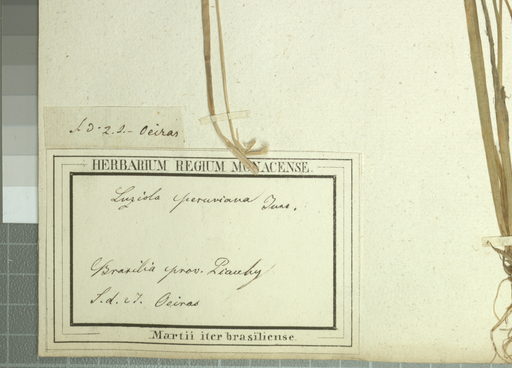 Oeiras
HERBARIUM REGIUM MONACENSE.
Luziola peruviana Juss.
Brasilia prov. Piauhy
S. d. Oeiras
Martii iter brasiliense.